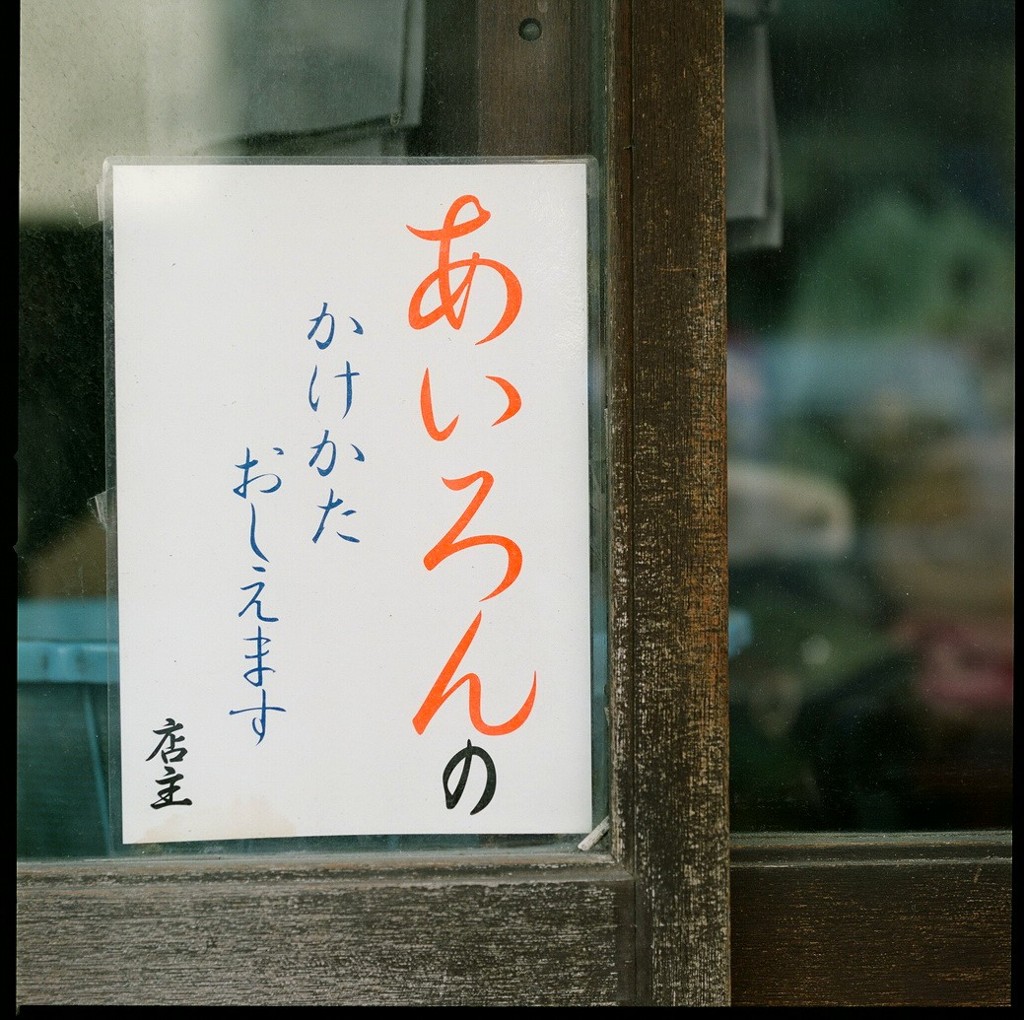 あいろんの
かけかた
おしえます
店主